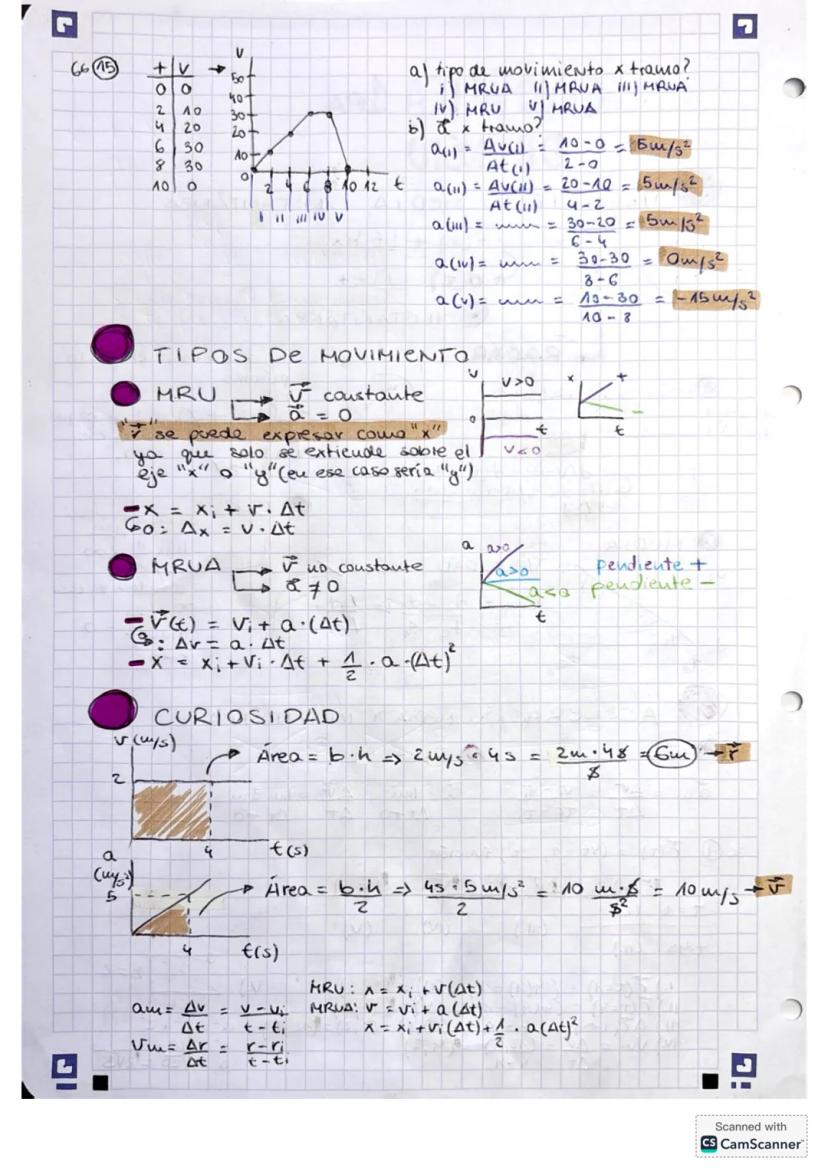 66 15
t v
0 0
2 10
4 20
6 30
8 30
10 0
v
50
40
30
20
10
0
2 4 6 8 10 12 t
I II III IV V
a) tipo de movimiento x tramo?
i) MRUA ii) MRUA iii) MRUA
iv) MRU v) MRUA
b) a⃗ x tramo?
a(i) = Δv(i)/Δt(i) = 10-0/2-0 = 5m/s²
a(ii) = Δv(ii)/Δt(ii) = 20-10/4-2 = 5m/s²
a(iii) = = 30-20/6-4 = 5m/s²
a(iv) = = 30-30/8-6 = 0m/s²
a(v) = = 10-30/10-8 = -15m/s²
TIPOS DE MOVIMIENTO
MRU → v⃗ constante
→ a⃗ = 0
v
v>0
0
t
v<0
x
+
-
t
"r⃗" se puede expresar como "x"
ya que solo se extiende sobre el
eje "x" o "y" (en ese caso sería "y")
- x = xi + v · Δt
o: Δx = v · Δt
MRUA → v⃗ no constante
→ a⃗ ≠ 0
a
a>0
a>0
a<0
t
pendiente +
pendiente -
- v⃗(t) = vi + a·(Δt)
: Δv = a · Δt
- x = xi + vi · Δt + 1/2 · a·(Δt)²
CURIOSIDAD
v (m/s)
2
4
t(s)
Área = b·h => 2m/s · 4s = 2m·4s/s = 6m → r⃗
a
(m/s²)
5
4
t(s)
Área = b·h/2 => 4s·5m/s²/2 = 10 m·s/s² = 10m/s → v⃗
MRU: x = xi + v(Δt)
am = Δv/Δt = v-vi/t-ti MRUA: v = vi + a(Δt)
x = xi + vi(Δt) + 1/2 · a(Δt)²
Vm = Δr/Δt = r-ri/t-ti
Scanned with
CS CamScanner